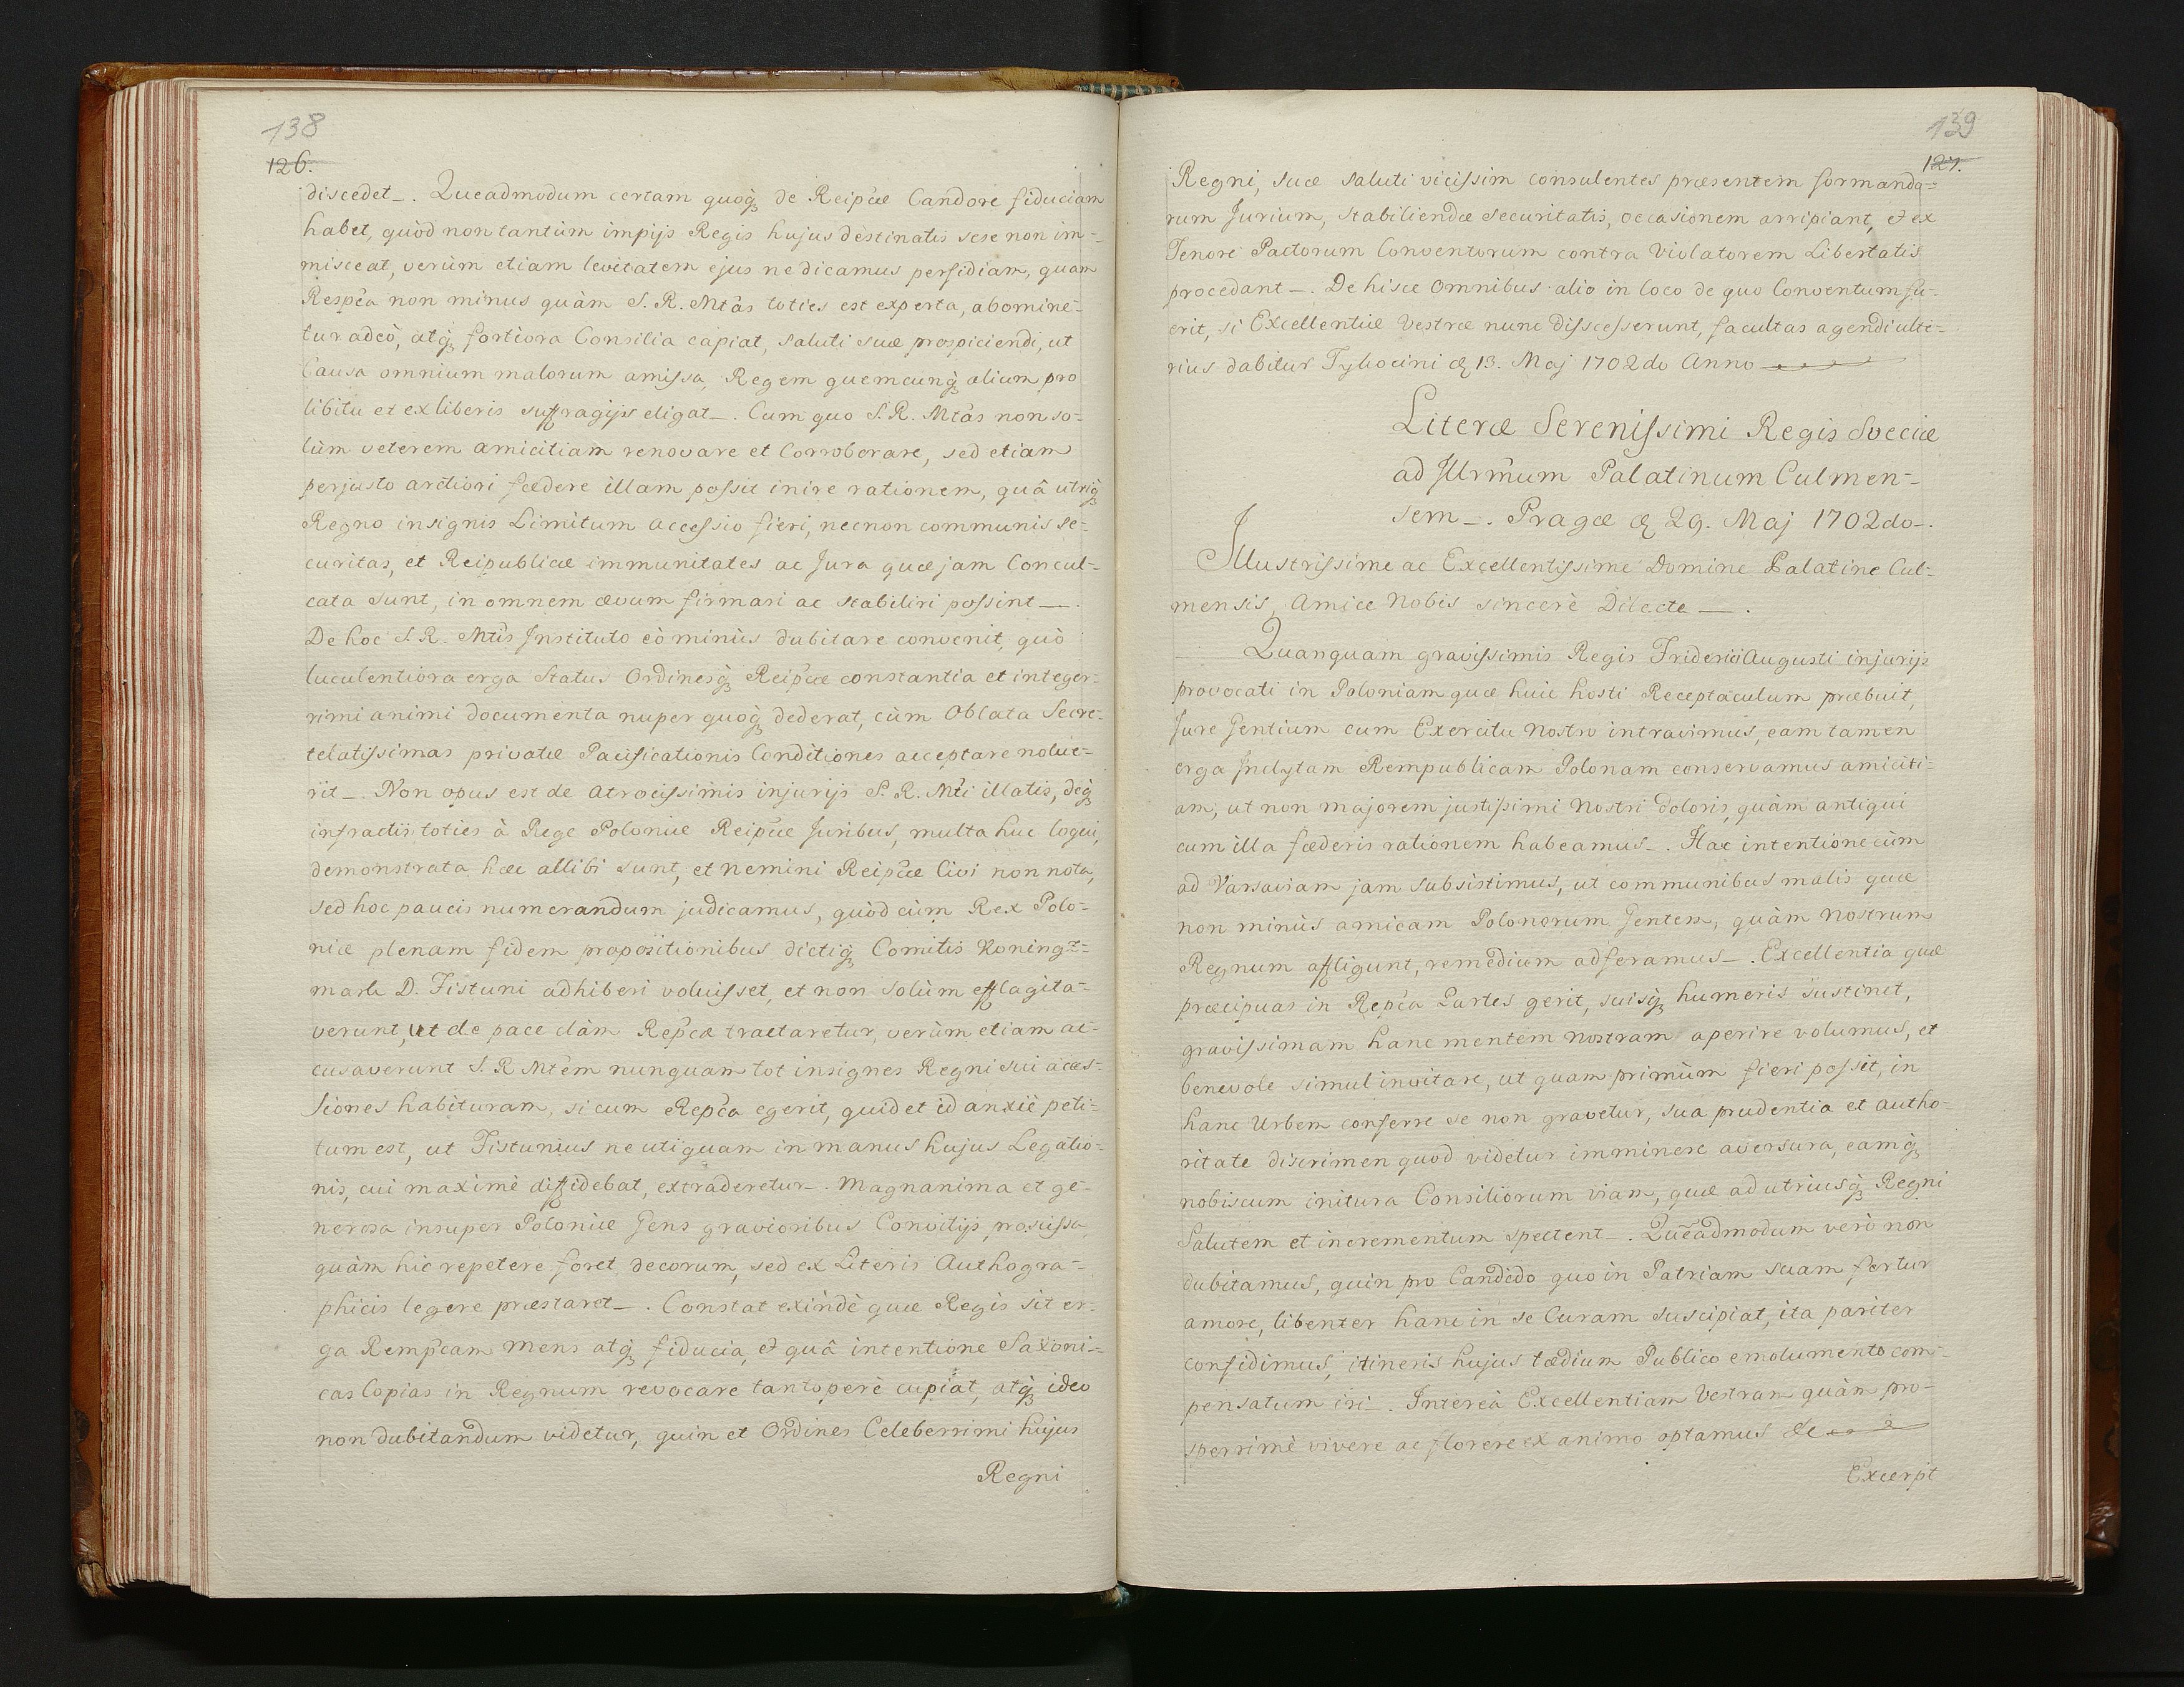 138
126.
discedet_. Queadmodum certam quoq₃ de Reip̃cæ Candore fiduciam
habet, quòd non tantùm impijs Regis hujus destinatis sese non im-
misceat, verùm etiam levitatem ejus ne dicamus perfidiam, quam
Resp̃ca non minus quàm S. R. Mtãs toties est experta, abomine-
tur adeò, atq₃ fortiora Consilia capiat, saluti suæ prospiciendi, ut
Causa omnium malorum amissa, Regem quemcunq₃ alium pro
libitu et ex liberis suffragijs eligat_. Cum quo S. R. Mtãs non so-
lùm veterem amicitiam renovare et Corroborare, sed etiam
perjusto arctiori fœdere illam possit inire rationem, quâ utriq₃
Regno insignis Limitum accessio fieri, necnon communis se-
curitas, et Reipublicæ immunitates ac Jura quæ jam Concul-
cata sunt, in omnem ævum firmari ac stabiliri possint_.
De hoc S. R. Mtĩs Instituto eò minùs dubitare convenit, quò
luculentiora erga Status Ordinesq₃ Reip̃cæ constantia et integer-
rimi animi documenta nuper quoq₃ dederat, cùm Oblata Secre-
telatissimas privatæ Pacificationis Conditiones acceptare nolue-
rit_. Non opus est de atrocissimis injurijs S. R. Mti illatis, deq₃
infractis toties à Rege Poloniæ Reip̃cæ Juribus, multa huc loqui,
demonstrata hæc allibi sunt, et nemini Reip̃cæ Civi non nota,
sed hoc paucis numerandum judicamus, quòd cùm Rex Polo-
niæ plenam fidem propositionibus dictiq₃ Comitis Koningz-
mark D. Fistuni adhiberi voluisset, et non solùm efflagita-
verunt, ut de pace clàm Rep̃cæ tractaretur, verùm etiam ac-
cusaverunt S. R Mtẽm nunquam tot insignes Regni sui acces-
siones habituram, si cum Rep̃ca egerit, quid et id anxiè peti-
tum est, ut Fistunius ne utiquam in manus hujus Legatio-
nis, cui maximè diffidebat, extraderetur_. Magnanima et ge-
nerosa insuper Poloniæ Gens gravioribus Convitijs proscissa,
quàm hic repetere foret decorum, sed ex Literis Authogra-
phicis legere præstaret_. Constat exindè quæ Regis sit er-
ga Remp̃cam mens atq₃ fiducia, et quâ intentione Saxoni-
cas Copias in Regnum revocare tantoperè cupiat, atq₃ ideo
non dubitandum videtur, quin et Ordines Celeberrimi hujus
Regni
139
127.
Regni, suæ saluti vicissim consulentes præsentem formanda-
rum Jurium, stabiliendæ securitatis, occasionem arripiant, et ex
Tenore Pactorum Conventorum contra Violatorem Libertatis
procedant_. De hisce omnibus alio in loco de quo Conventum fu-
erit, si Excellentiæ Vestræ nunc Disscesserunt, facultas agendi ulte-
rius dabitur Tykocini d. 13. Maj 1702do Anno
Literæ Serenissimi Regis Sveciæ
ad Illrm̃um Palatinum Culmen-
sem_. Pragæ d. 29. Maj 1702do_.
Illustrissime ac Excellentissime Domine Palatine Cul-
mensis, Amice Nobis sincerè Dilecte_.
Quanquam gravissimis Regis Friderici Augusti injurijs
provocati in Poloniam quæ huic hosti Receptaculum præbuit,
Jure Gentium cum Exercitu Nostro intravimus, eam tamen
erga Inclytam Rempublicam Polonam conservamus amiciti-
am, ut non majorem justissimi Nostri doloris, quàm antiqui
cum illa fœderis rationem habeamus_. Hac intentione cùm
ad Varsaviam jam subsistimus, ut communibus malis quæ
non minùs amicam Polonorum Gentem, quàm Nostrum
Regnum affligunt, remedium adferamus_. Excellentia quæ
præcipuas in Rep̃ca Partes gerit, suisq₃ humeris sustinet,
gravissimam hanc mentem nostram aperire volumus, et
benevole simul invitare, ut quam primùm fieri possit, in
hanc Urbem conferre se non gravetur, sua prudentia et autho-
ritate discrimen quod videtur imminere aversura, eamq₃
nobiscum initura Consiliorum viam, quæ ad utriusq₃ Regni
Salutem et incrementum spectent_. Quẽadmodum verò non
dubitamus, quin pro Candido quo in Patriam suam fertur
amore, libenter hanc in se Curam suscipiat, ita pariter
confidimus, itineris hujus tædium Publico emolumento com-
pensatum iri_. Intereà Excellentiam Vestram quàm pro-
sperrimè vivere ac florere ex animo optamus &c
Excerpt